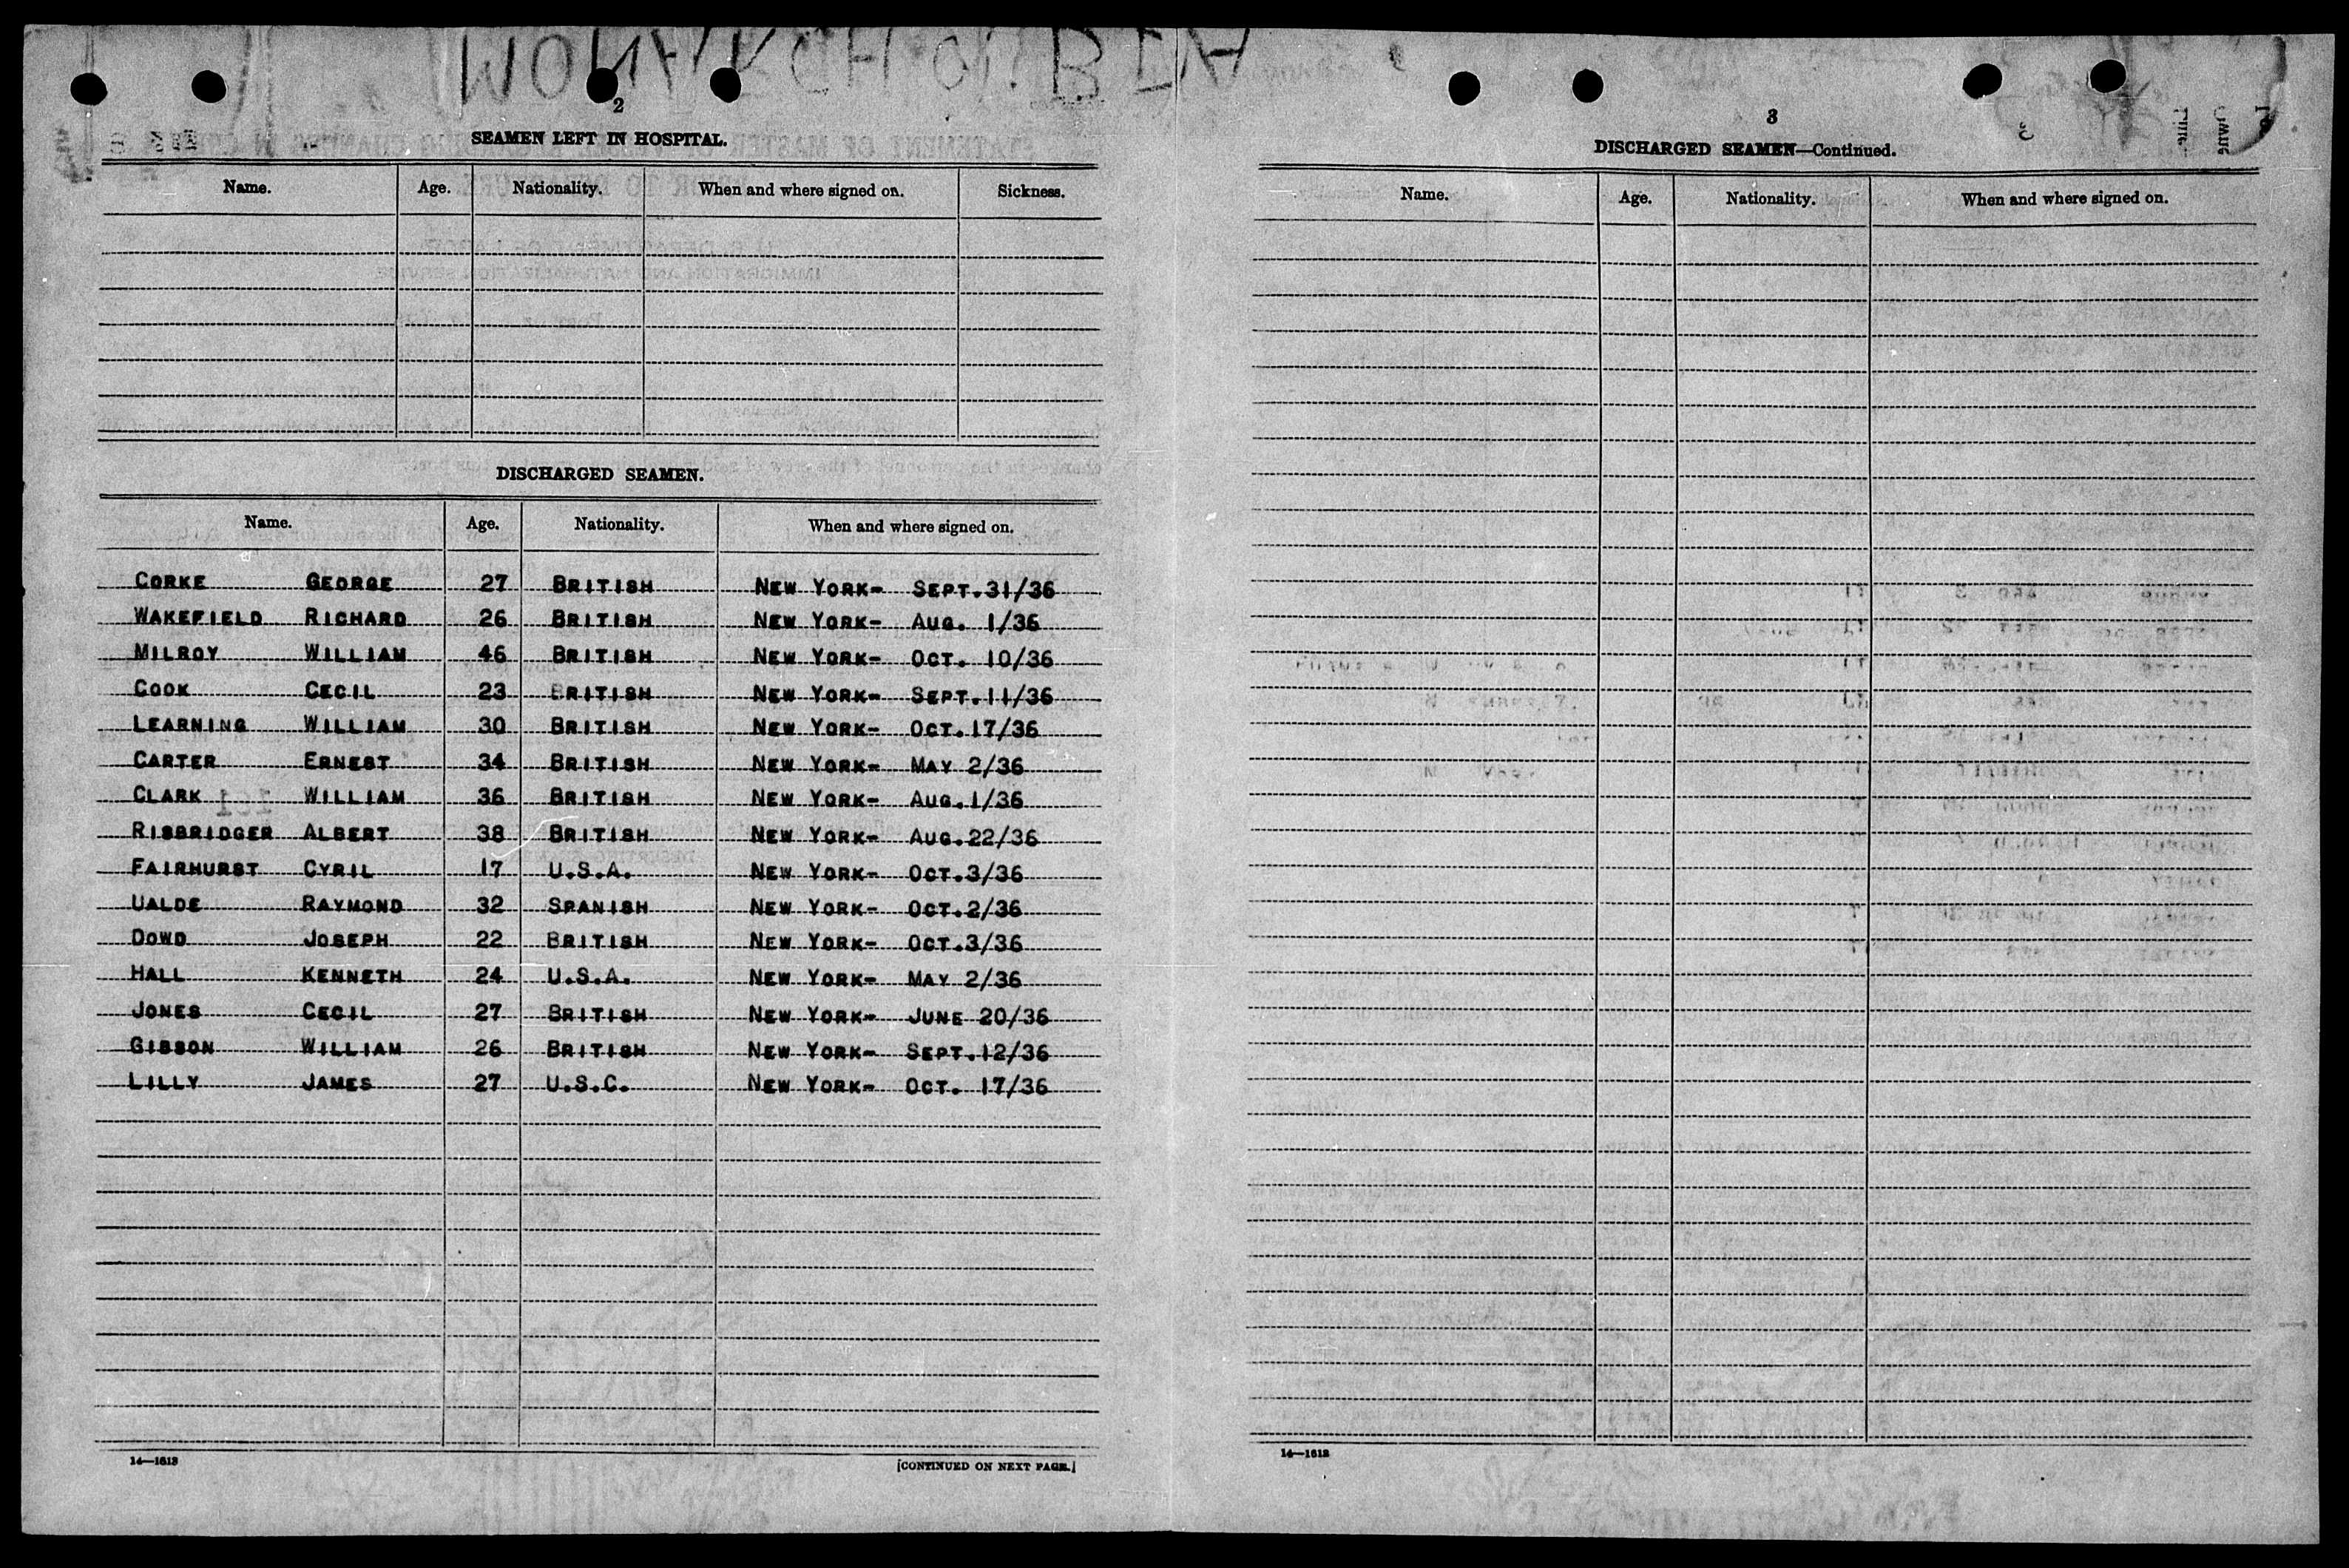 MONARCH O. BDA
2
SEAMEN LEFT IN HOSPITAL.
Name. Age. Nationality. When and where signed on. Sickness.
DISCHARGED SEAMEN.
Name. Age. Nationality. When and where signed on.
CORKE GEORGE 27 BRITISH NEW YORK- SEPT.31/36
WAKEFIELD RICHARD 26 BRITISH NEW YORK- AUG. 1/36
MILROY WILLIAM 46 BRITISH NEW YORK- OCT. 10/36
COOK CECIL 23 BRITISH NEW YORK- SEPT.11/36
LEARNING WILLIAM 30 BRITISH NEW YORK- OCT.17/36
CARTER ERNEST 34 BRITISH NEW YORK- MAY 2/36
CLARK WILLIAM 36 BRITISH NEW YORK- AUG.1/36
RISBRIDGER ALBERT 38 BRITISH NEW YORK- AUG.22/36
FAIRHURST CYRIL 17 U.S.A. NEW YORK- OCT.3/36
UALDE RAYMOND 32 SPANISH NEW YORK- OCT.2/36
DOWD JOSEPH 22 BRITISH NEW YORK- OCT.3/36
HALL KENNETH 24 U.S.A. NEW YORK- MAY 2/36
JONES CECIL 27 BRITISH NEW YORK- JUNE 20/36
GIBSON WILLIAM 26 BRITISH NEW YORK- SEPT.12/36
LILLY JAMES 27 U.S.C. NEW YORK- OCT. 17/36
14—1613
[CONTINUED ON NEXT PAGE.]
3
DISCHARGED SEAMEN—Continued.
Name. Age. Nationality. When and where signed on.
14—1613